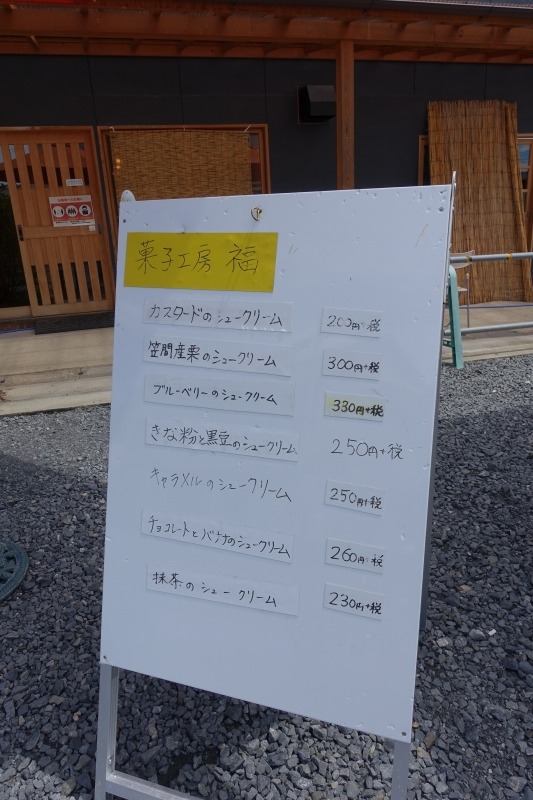 菓子工房 福
カスタードのシュークリーム 200円+税
笠間産栗のシュークリーム 300円+税
ブルーベリーのシュークリーム 330円+税
きな粉と黒豆のシュークリーム 250円+税
キャラメルのシュークリーム 250円+税
チョコレートとバナナのシュークリーム 260円+税
抹茶のシュークリーム 230円+税